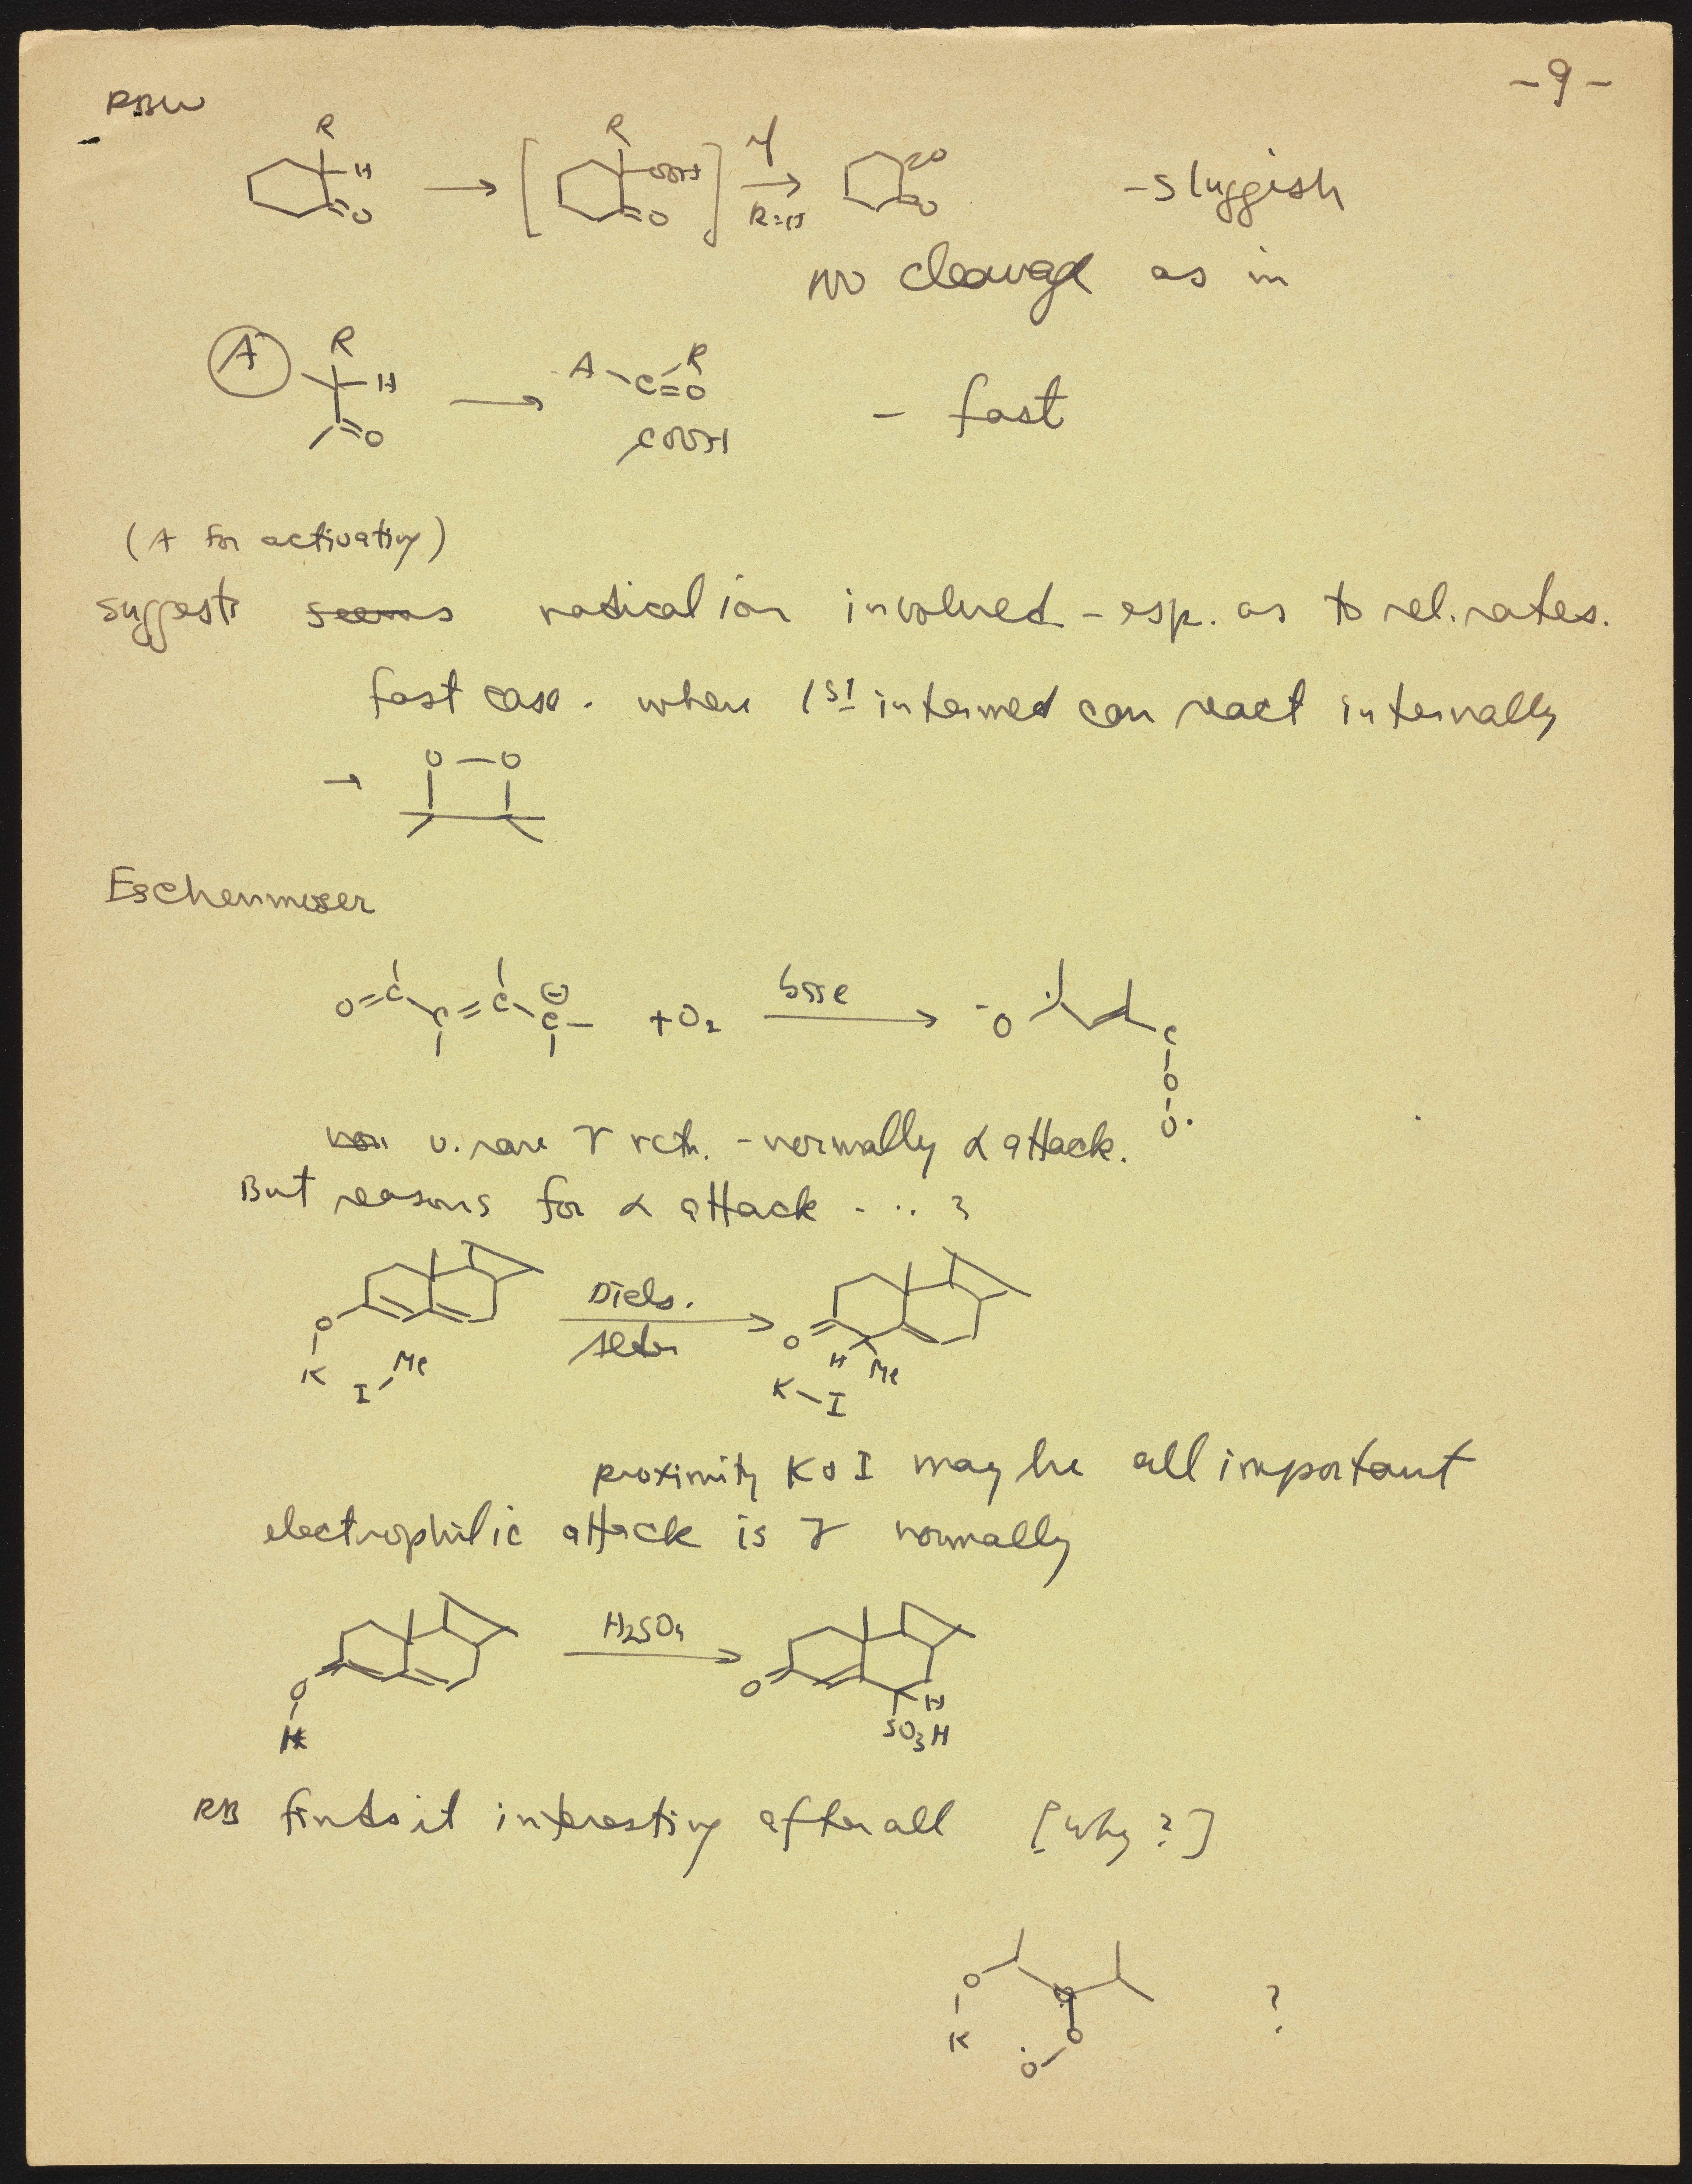 -9-
RBW
R
R
H
OOH
=O
=O
R=H
=O
=O
- sluggish
no cleavage as in
A
R
H
=O
A - C = O
R
COOH
- fast
(A for activating)
suggests seems radical ion involved - esp. as to rel. rates.
fast case. where 1st intermed can react internally
→ O — O
Eschenmoser
O=C C=C C ⊖ + O2 base → -O C
O
O·
v. rare γ rctn. - normally α attack.
But reasons for α attack - .. ?
O K I Me
Diels.
Alder
O H Me
K-I
proximity K & I may be all important
electrophilic attack is γ normally
O H
H2SO4
O H
SO3H
RB finds it interesting after all [Why?]
O
K
O
·O
?